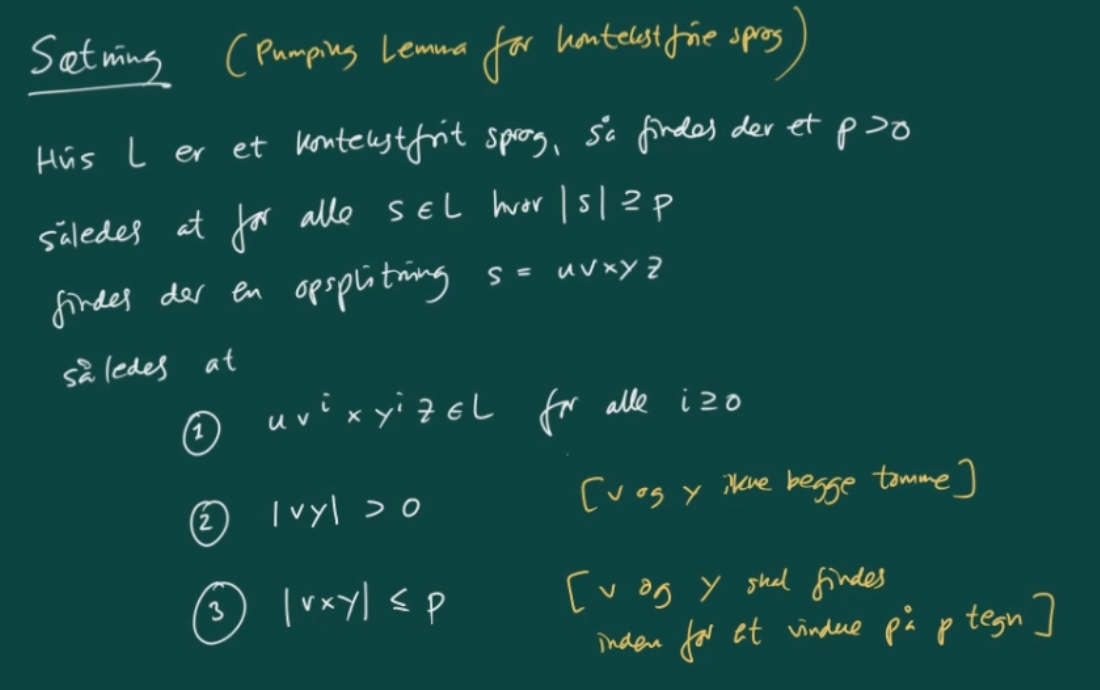 Sætning (Pumping Lemma for kontekstfrie sprog)
Hvis L er et kontekstfrit sprog, så findes der et p > 0
således at for alle s ∈ L hvor |s| ≥ p
findes der en opsplitning s = uvxyz
således at
① uvⁱxyⁱz ∈ L for alle i ≥ 0
② |vy| > 0 [v og y ikke begge tomme]
③ |vxy| ≤ p [v og y skal findes
inden for et vindue på p tegn]